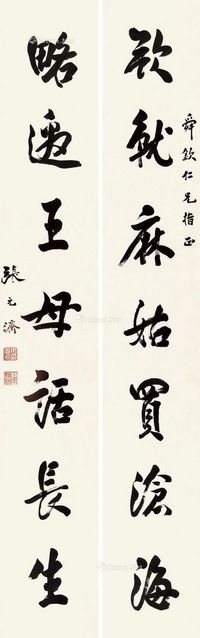 舜欽仁兄指正
欲就麻姑買滄海
略邀王母話長生
張元濟